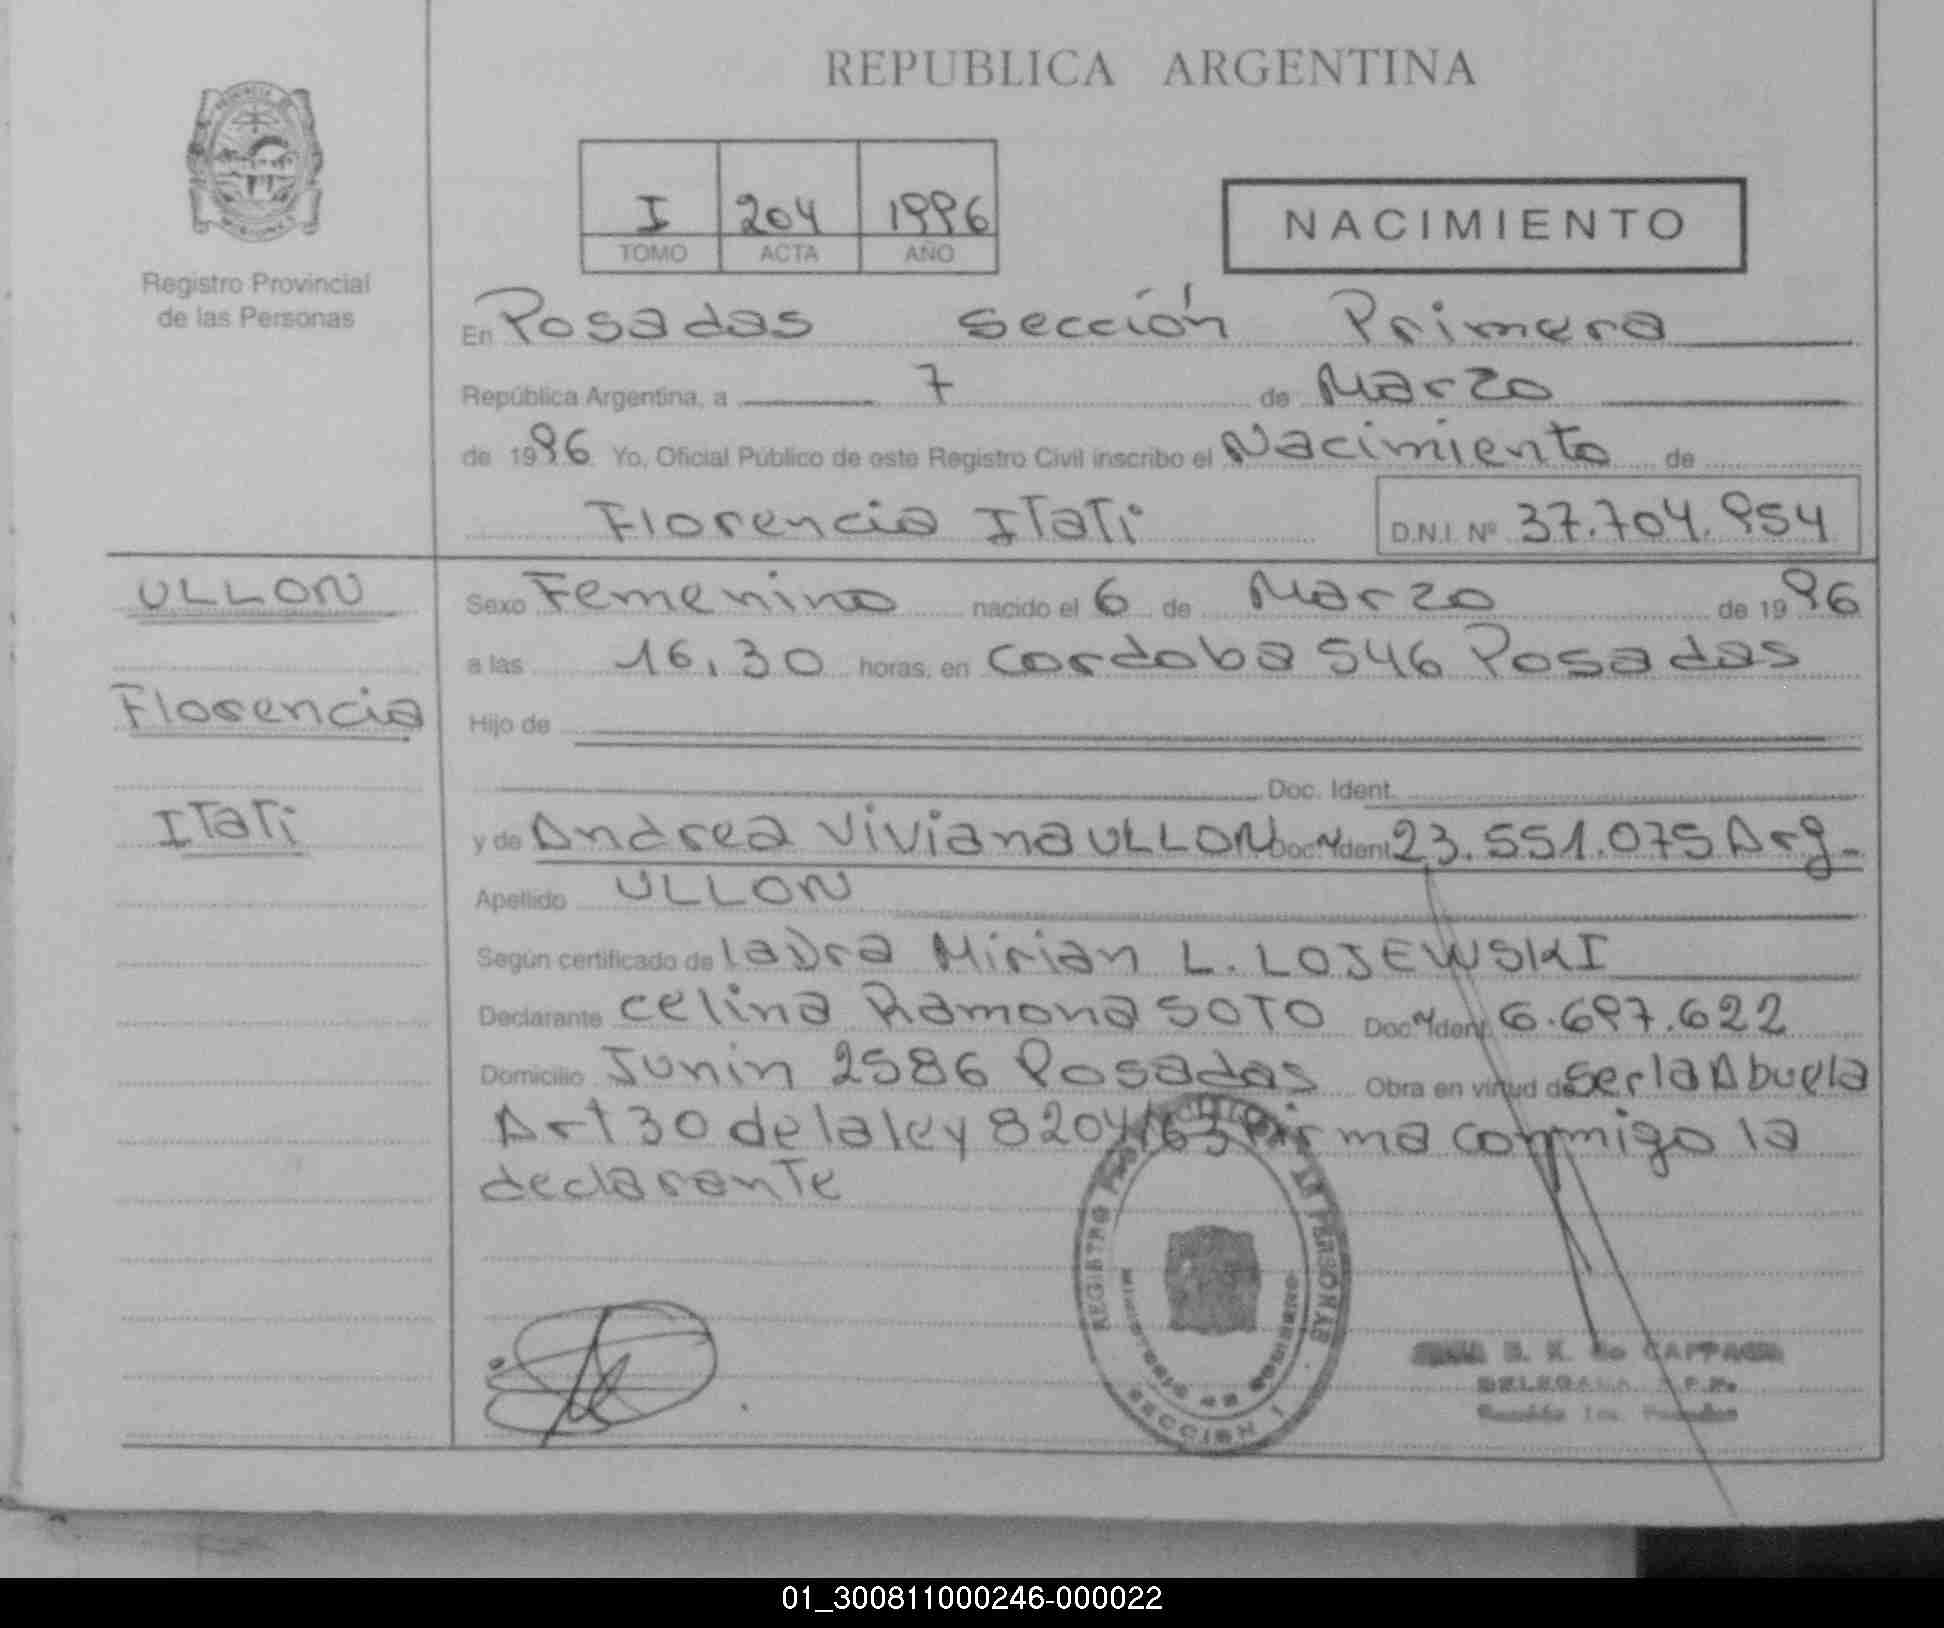 REPUBLICA ARGENTINA
I 204 1996
TOMO ACTA AÑO
NACIMIENTO
Registro Provincial
de las Personas
En Posadas sección Primera
República Argentina, a 7 de Marzo
de 1996 Yo, Oficial Público de este Registro Civil inscribo el Nacimiento de
Florencia Itati D.N.I. Nº 37.704.954
ULLON
Florencia
Itati
Sexo Femenino nacido el 6 de Marzo de 1996
a las 16.30 horas, en Cordoba 546 Posadas
Hijo de
Doc. Ident.
y de Andrea Viviana ULLON Doc. Ident. 23.551.075 Arg.
Apellido ULLON
Según certificado de la Dra Mirian L. LOJEWSKI
Declarante Celina Ramona SOTO Doc. Ident. 6.697.622
Domicilio Junin 2586 Posadas Obra en virtud de ser la Abuela
Art 30 de la ley 8204/63 Firma conmigo la
declarante
REGISTRO DE LAS PERSONAS
MINISTERIO DE GOBIERNO
SECCION 1
DELEGADA
01_300811000246-000022